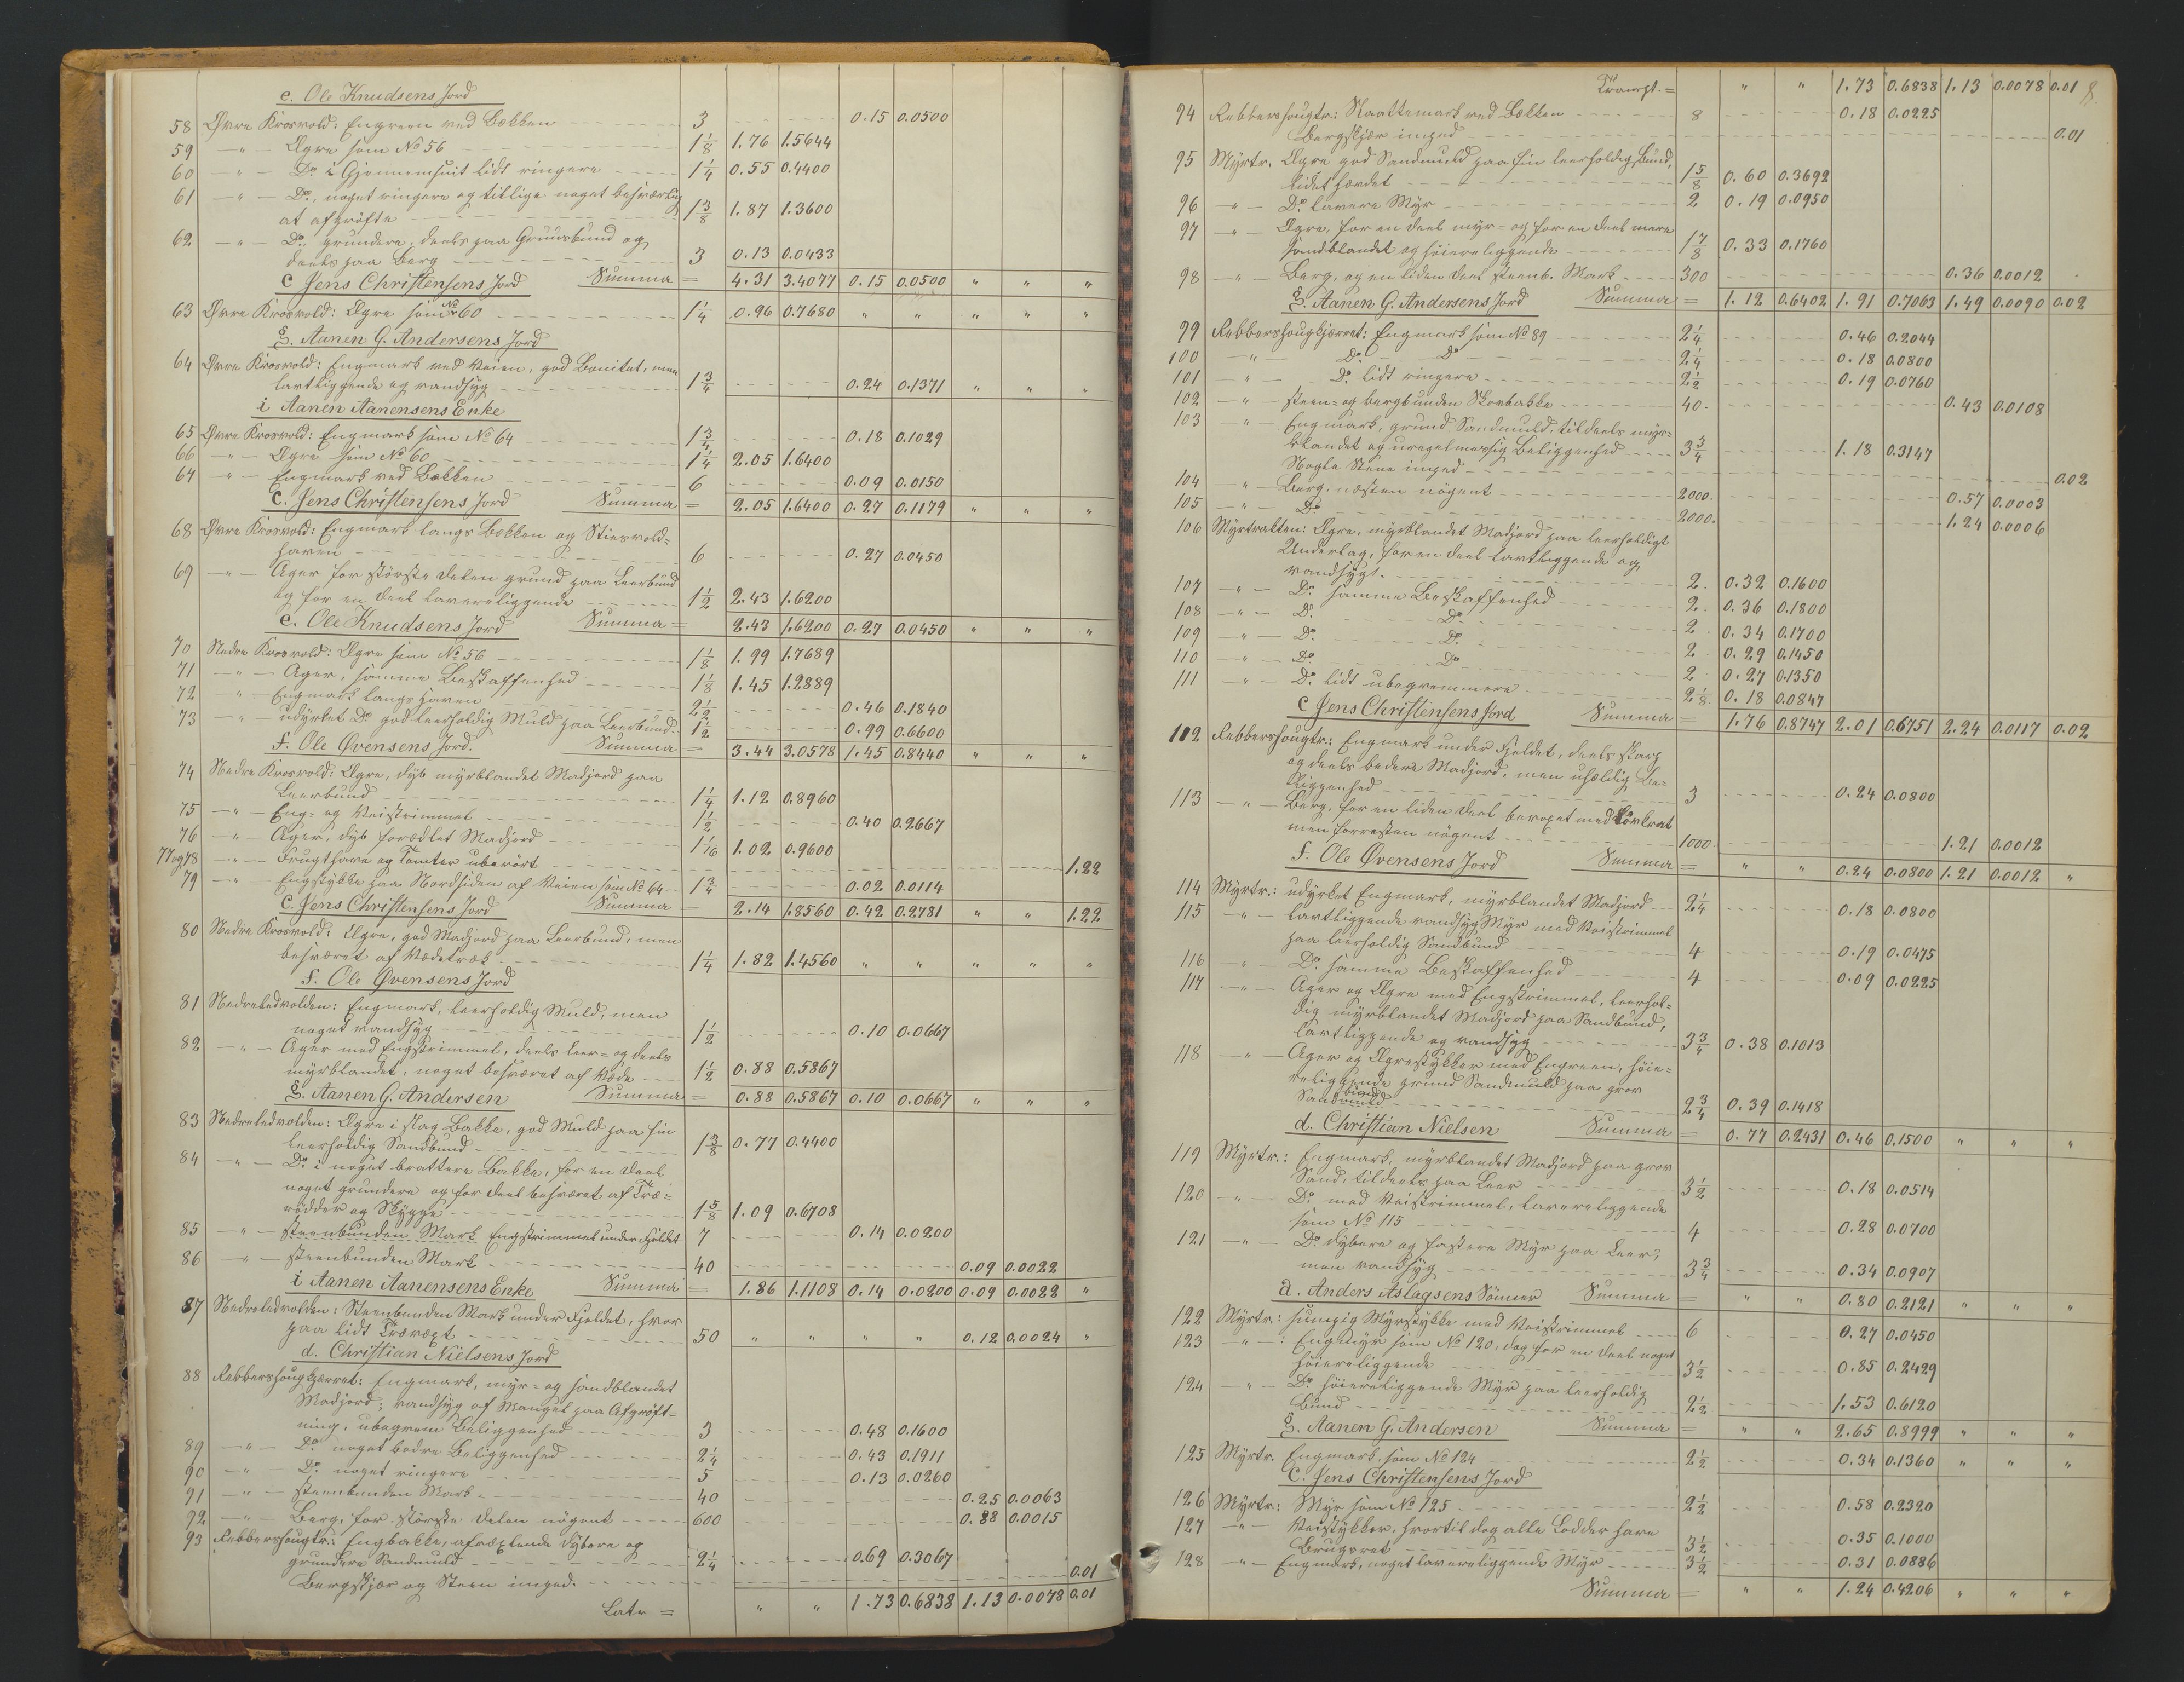 e. Ole Knudsens Jord
58 Øvre Krosvold: Engreen ved Bækken 3 0.15 0.0500
59 —"— Agre som No 56 1 1/8 1.76 1.5644
60 —"— Do i Gjennemsnit lidt ringere 1 1/4 0.55 0.4400
61 —"— Do, noget ringere og tillige noget besværlig
at afgrøfte 1 3/8 1.87 1.3600
62 —"— Do grundere, deels paa Gruusbund og
deels paa Berg 3 0.13 0.0433
c Jens Christensens Jord Summa = 4.31 3.4077 0.15 0.0500 " " "
63 Øvre Krosvold: Agre som No 60 1 1/4 0.96 0.7680 " " " " "
g. Aanen G. Andersens Jord
64 Øvre Krosvold: Engmark ved Veien, god Bonitet, men
lavtliggende og vandsyg 1 3/4 0.24 0.1371 " " "
i Aanen Aanensens Enke
65 Øvre Krosvold: Engmark som No 64 1 3/4 0.18 0.1029
66 —"— Agre som No 60 1 1/4 2.05 1.6400
67 —"— Engmark ved Bækken 6 0.09 0.0150
c. Jens Christensens Jord Summa = 2.05 1.6400 0.27 0.1179 " " "
68 Øvre Krosvold: Engmark langs Bækken og Stiesvold-
haven 6 0.27 0.0450
69 —"— Ager for største delen grund paa Leerbund
og for en deel lavereliggende 1 1/2 2.43 1.6200
e. Ole Knudsens Jord Summa = 2.43 1.6200 0.27 0.0450 " " "
70 Nedre Krosvold: Agre som No 56 1 1/8 1.99 1.7689
71 —"— Ager, samme Beskaffenhed 1 1/8 1.45 1.2889
72 " — Engmark langs Haven 2 1/2 0.46 0.1840
73 —"— udyrket Do god leerholdig Muld paa Leerbund 1 1/2 0.99 0.6600
f. Ole Øvensens Jord. Summa = 3.44 3.0578 1.45 0.8440 " " "
74 Nedre Krosvold: Agre, dyb myrblandet Madjord paa
Leerbund 1 1/4 1.12 0.8960
75 —"— Eng- og Veistrimmel 1 1/2 0.40 0.2667
76 —"— Ager, dyb forædlet Madjord 1 1/16 1.02 0.9600
77 og 78 —"— Frugthave og Tomter uberørt 1.22
79 —"— Engstykke paa Nordsiden af Veien som No 64 1 3/4 0.02 0.0114
c. Jens Christensens Jord Summa = 2.14 1.8560 0.42 0.2781 " " 1.22
80 Nedre Krosvold: Agre, god Madjord paa Leerbund, men
besværet af Vædetræk 1 1/4 1.82 1.4560 " " " " "
f. Ole Øvensens Jord
81 Nedreledvolden: Engmark, leerholdig Muld, men
noget vandsyg 1 1/2 0.10 0.0667
82 —"— Ager med Engstrimmel, deels leer- og deels
myrblandet, noget besværet af Væde 1 1/2 0.88 0.5867
g. Aanen G. Andersen Summa = 0.88 0.5867 0.10 0.0667 " " "
83 Nedreledvolden: Agre i slag Bakke, god Muld paa fin
leerholdig Sandbund 1 3/8 0.77 0.4400
84 —"— Do i noget brattere Bakke, for en deel
noget grundere og for deel besværet af Træ-
rødder og Skygge 1 5/8 1.09 0.6708
85 —"— steenbunden Mark Engstrimmel under Fjeldet 7 0.14 0.0200
86 —"— steenbunden Mark 40 0.09 0.0022
i Aanen Aanensens Enke Summa = 1.86 1.1108 0.14 0.0200 0.09 0.0022 "
87 Nedreledvolden: Steenbunden Mark under Fjeldet, hvor
paa lidt Trævæxt 50 " " " " 0.12 0.0024 "
d. Christian Nielsens Jord
88 Rebbershougkjærret: Engmark, myr- og sandblandet
Madjord; vandsyg af Mangel paa Afgrøft-
ning, ubeqvem Beliggenhed 3 0.48 0.1600
89 —"— Do noget bedre Beliggenhed 2 1/4 0.43 0.1911
90 —"— Do noget ringere 5 0.13 0.0260
91 —"— steenbunden Mark 40 0.25 0.0063
92 —"— Berg, for største delen nøgent 600 0.88 0.0015
93 Rebbershougtr.: Engbakke, afvexlende dybere og
grundere Sandmuld 2 1/4 0.69 0.3067
Bergskjær og Steen imped. 0.01
Latr = " " 1.73 0.6838 1.13 0.0078 0.01
Transpt. = " " 1.73 0.6838 1.13 0.0078 0.01 8.
94 Rebbershougtr: Slaattemark ved Bækken 8 0.18 0.0225
Bergskjær imped 0.01
95 Myrtr. Agre god Sandmuld paa fin leerholdig Bund,
lidet hævdet 1 5/8 0.60 0.3692
96 —"— Do lavere Myr 2 0.19 0.0950
97 —"— Agre, for en deel myr- og for en deel mere
sandblandet og høiereliggende 1 7/8 0.33 0.1760
98 —"— Berg, og en liden deel steenb. Mark 300 0.36 0.0012
g. Aanen G. Andersens Jord Summa = 1.12 0.6402 1.91 0.7063 1.49 0.0090 0.02
99 Rebbershougkjærret: Engmark som No 89 2 1/4 0.46 0.2044
100 —"— Do Do 2 1/4 0.18 0.0800
101 —"— Do lidt ringere 2 1/2 0.19 0.0760
102 —"— steen- og bergbunden Skovbakke 40. 0.43 0.0108
103 —"— Engmark, grund Sandmuld, tildeels myr-
blandet og uregelmessig Beliggenhed 3 3/4 1.18 0.3147
Nogle Stene imped 0.02
104 —"— Berg, næsten nøgent 2000. 0.57 0.0003
105 —"— Do 2000. 1.24 0.0006
106 Myrtrakten: Agre, myrblandet Madjord paa leerholdigt
Underlag, for en deel lavtliggende og
vandsygt. 2. 0.32 0.1600
107 —"— Do samme Beskaffenhed 2. 0.36 0.1800
108 —"— Do Do 2. 0.34 0.1700
109 —"— Do Do 2. 0.29 0.1450
110 —"— Do Do 2 0.27 0.1350
111 —"— Do lidt ubeqvemmere 2 1/8. 0.18 0.0847
c Jens Christensens Jord Summa = 1.76 0.8747 2.01 0.6751 2.24 0.0117 0.02
112 Rebbershougtr.: Engmark under Fjeldet, deels skarp
og deels bedere Madjord, men uheldig Be-
liggenhed 3 0.24 0.0800
113 —"— Berg, for en liden deel bevoxet med Løvkrat
men forresten nøgent 1000. 1.21 0.0012
f. Ole Øvensens Jord Summa = " " 0.24 0.0800 1.21 0.0012 "
114 Myrtr.: udyrket Engmark, myrblandet Madjord 2 1/4 0.18 0.0800
115 —"— lavtliggende vandsyg Myr med Veistrimmel
paa leerholdig Sandbund 4 0.19 0.0475
116 " — Do samme Beskaffenhed 4 0.09 0.0225
117 —"— Ager og Agre med Engstrimmel, leerhol-
dig myrblandet Madjord paa Sandbund,
lavtliggende og vandsyg 3 3/4 0.38 0.1013
118 " — Ager og Agrestykker med Engreen, høie-
religgende grund Sandmuld paa grov
Sandbund 2 3/4 0.39 0.1418
d. Christian Nielsen Summa = 0.77 0.2431 0.46 0.1500 " " "
119 Myrtr.: Engmark, myrblandet Madjord paa grov
Sand, tildeels paa Leer 3 1/2 0.18 0.0514
120 —"— Do med Veistrimmel, lavereliggende
som No 115 4 0.28 0.0700
121 —"— Do dybere og fastere Myr paa Leer,
men vandsyg 3 3/4 0.34 0.0907
a. Anders Aslagsens Sönner Summa = " " 0.80 0.2121 " " "
122 Myrtr.: sumpig Myrstykke med Veistrimmel 6 0.27 0.0450
123 —"—: Engmyr som No 120, dog for en deel noget
høiereliggende 3 1/2 0.85 0.2429
124 —"— Do høiereliggende Myr paa leerholdig
Bund 2 1/2 1.53 0.6120
g. Aanen G. Andersen Summa = " " 2.65 0.8999 " " "
125 Myrtr. Engmark som No 124 2 1/2 0.34 0.1360 " " "
C. Jens Christensens Jord
126 Myrtr.: Myr som No 125 2 1/2 0.58 0.2320
127 —"— Veistykker, hvortil dog alle Lodder have
Brugsret 3 1/2 0.35 0.1000
128 —"— Engmark, noget lavereliggende Myr 3 1/2 0.31 0.0886
Summa = " " 1.24 0.4206 " " "